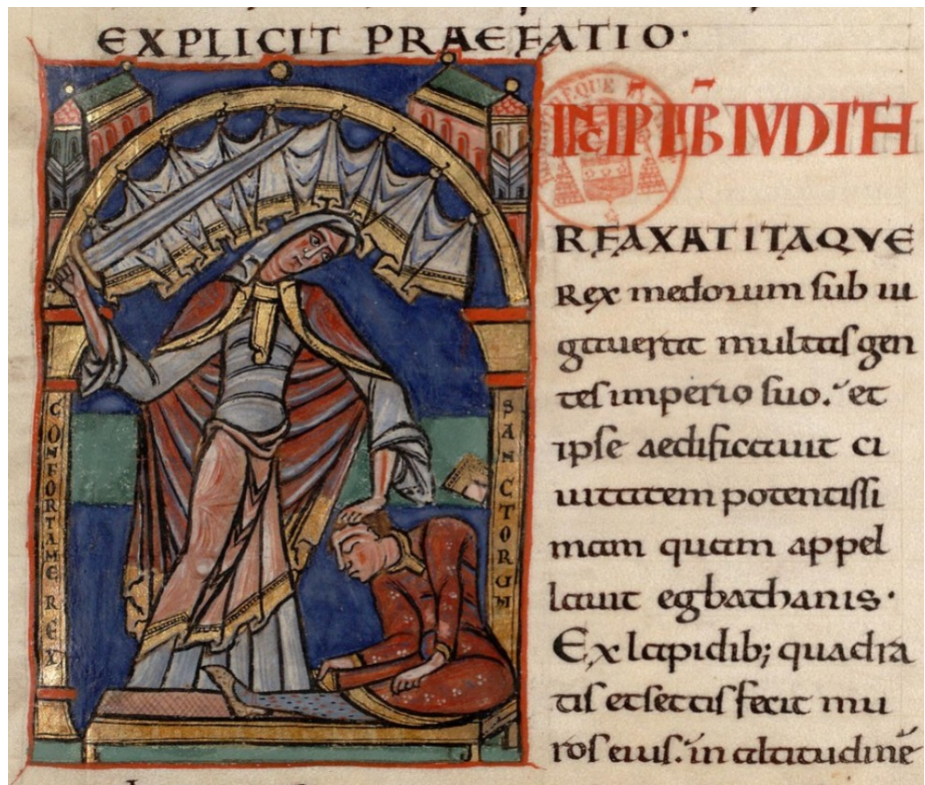 EXPLICIT PRAEFATIO·
CONFORTA ME REX
SANCTORUM
INCIPIT LIB̄ IVDITH
RFAXAT ITAQVE
Rex medorum sub iu
gauerat multas gen
tes imperio suo. et
ipse aedificauit ci
uitatem potentissi
mam quam appel
lauit egbathanis·
Ex lapidib; quadra
tis et sectis fecit mu
ros eius. in altitudinē